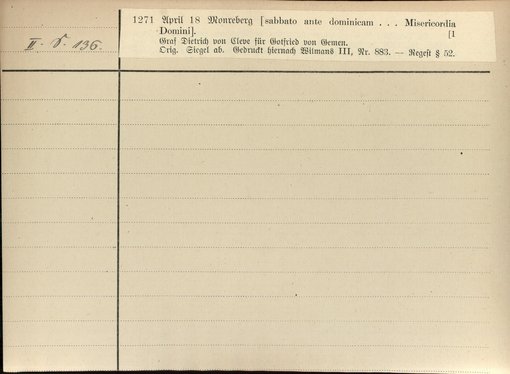 1271 April 18 Monreberg [sabbato ante dominicam . . . Misericordia
Domini]. [1
Graf Dietrich von Cleve für Gotfried von Gemen.
Orig. Siegel ab. Gedruckt hiernach Wilmans III, Nr. 883. — Regest § 52.
II. S. 136.